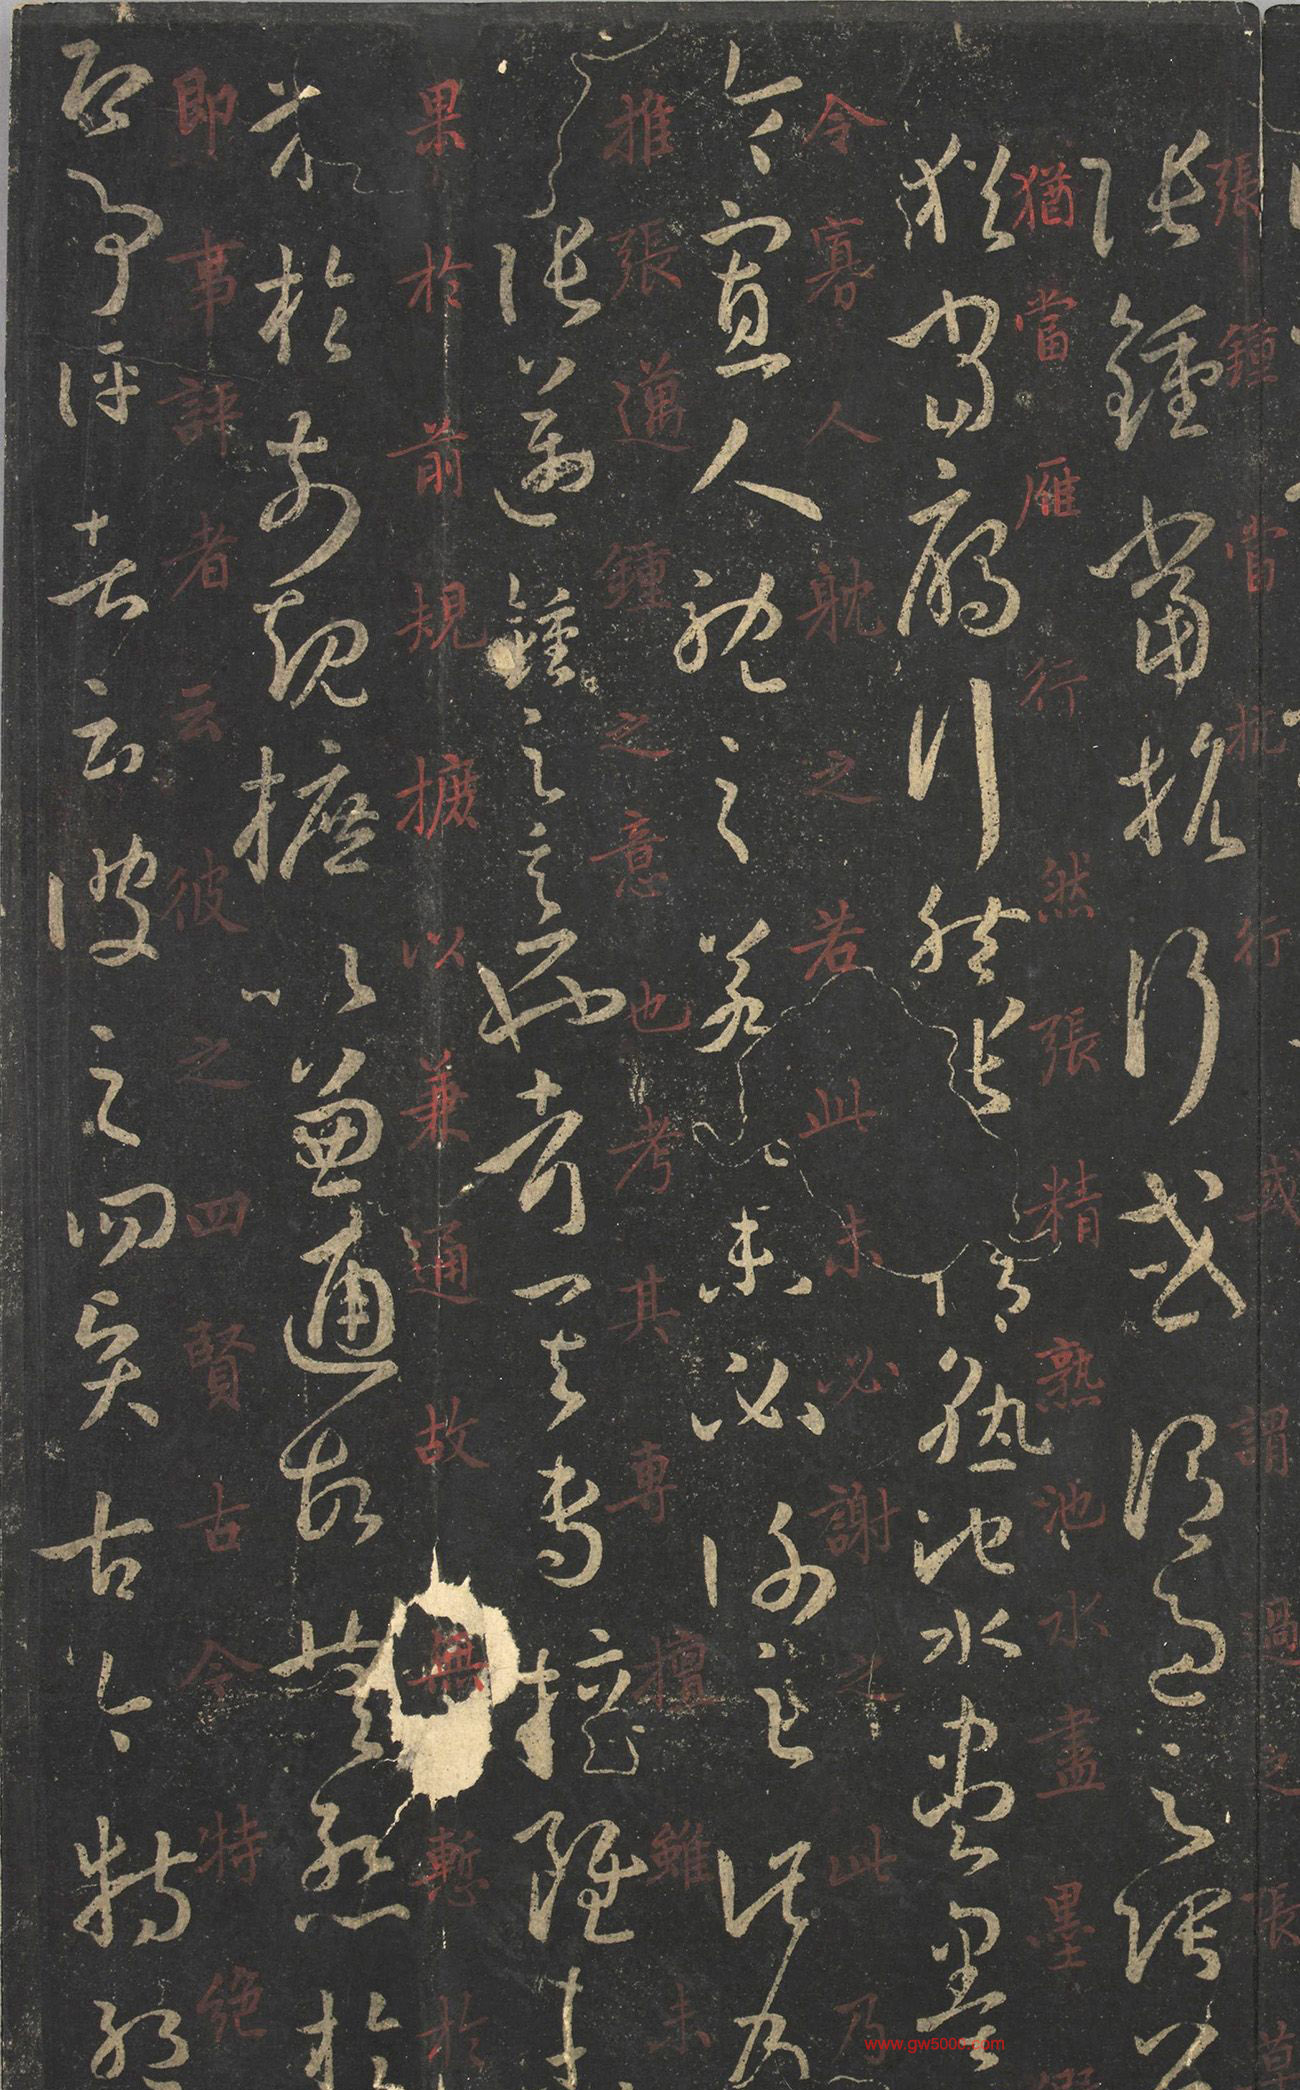 張鍾當抗行或謂過之張草
張鍾當抗行或謂過之張草
猶當雁行然張精熟池水盡墨
猶當雁行然張精熟池水盡墨
令寡人耽之若此未必謝之此乃
令寡人耽之若未必謝之此乃
推張邁鍾之意也考其專擅雖未
張邁鍾之意也考其專擅雖未
果於前規擴以兼通故無慙於
果於前規摭以兼通故無慙於
即事評者云彼之四賢古今特絶
即事評者云彼之四賢古今特絶
www.gw5000.com